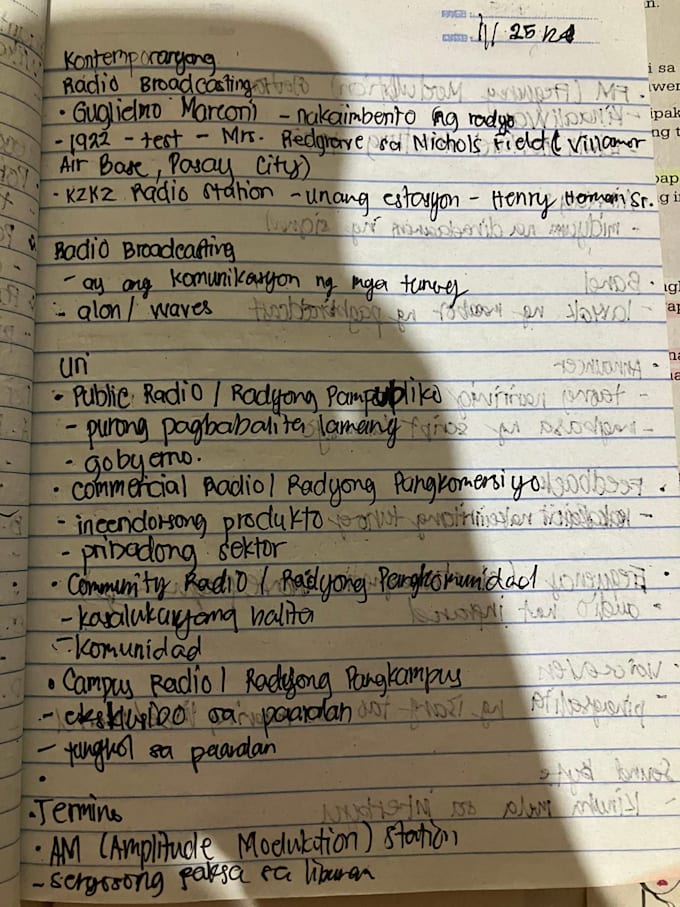 11/25/24
Kontemporaryong
Radio Broadcasting
• Guglielmo Marconi - nakaimbento ng radyo
- 1922 - test - Mrs. Redgrave sa Nichols Field ( Villamor
Air Base, Pasay City)
• KZKZ Radio Station - unang estasyon - Henry Herman Sr.
Radio Broadcasting
- ay ang komunikasyon ng mga tunog
- alon / waves
uri
• Public Radio / Radyong Pampubliko
- purong pagbabalita lamang
- gobyerno.
• Commercial Radio / Radyong Pangkomersiyo
- ineendorsong produkto
- pribadong sektor
• Community Radio / Radyong Pangkomunidad
- kasalukuyang balita
- komunidad
• Campus Radio / Radyong Pangkampus
- eksklusibo sa paaralan
- tungkol sa paaralan
•
• Termino
• AM (Amplitude Modulation) Station
- seryosong paksa sa